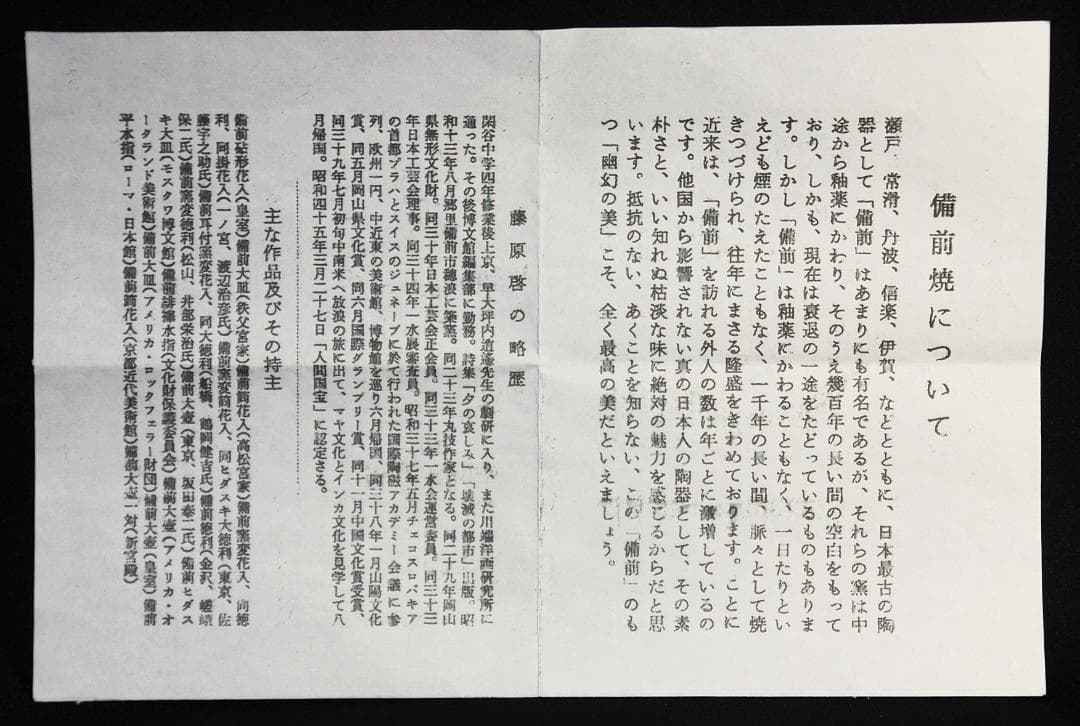 備前焼について
瀬戸、常滑、丹波、信楽、伊賀、などとともに、日本最古の陶
器として「備前」はあまりにも有名であるが、それらの窯は中
途から釉薬にかわり、そのうえ幾百年の長い間の空白をもって
おり、しかも、現在は衰退の一途をたどっているものもありま
す。しかし「備前」は釉薬にかわることもなく、一日たりとい
えども煙のたえたこともなく、一千年の長い間、脈々として焼
きつづけられ、往年にまさる隆盛をきわめております。ことに
近来は、「備前」を訪れる外人の数は年ごとに激増しているの
です。他国から影響されない真の日本人の陶器として、その素
朴さと、いい知れぬ枯淡な味に絶対の魅力を感じるからだと思
います。抵抗のない、あくことを知らない、この「備前」のも
つ「幽幻の美」こそ、全く最高の美だといえましょう。
藤原啓の略歴
閑谷中学四年修業後上京、早大坪内逍遙先生の劇研に入り、また川端洋画研究所に
通った。その後博文館編集部に勤務。詩集「夕の哀しみ」「壊滅の都市」出版。昭
和十三年八月郷里備前市穂浪に築窯。同二十三年丸技作家となる。同二十九年岡山
県無形文化財。同三十年日本工芸会正会員。同三十三年一水会運営委員。同三十三
年日本工芸会理事。同三十四年一水展審査員。昭和三十七年五月チェコスロバキア
の首都プラハとスイスのジュネーブに於て行われた国際陶磁アカデミー会議に参
列、欧州一円、中近東の美術館、博物館を巡り六月帰国、同三十八年一月山陽文化
賞、同五月岡山県文化賞、同六月国際グランプリー賞、同十一月中国文化賞受賞、
同三十九年七月初旬中南米へ放浪の旅に出て、マヤ文化とインカ文化を見学して八
月帰国。昭和四十五年三月二十七日「人間国宝」に認定さる。
主な作品及びその持主
備前砧形花入(皇室)備前大皿(秩父宮家)備前筒花入(高松宮家)備前窯変花入、同徳
利、同掛花入(一ノ宮、渡辺治彦氏)備前窯変筒花入、同ヒダスキ大徳利(東京、佐
藤宇之助氏)備前耳付窯変花入、同大徳利(船橋、鶴岡健吉氏)備前徳利(金沢、嵯峨
保二氏)備前窯変徳利(松山、井部栄治氏)備前大壺(東京、坂田泰二氏)備前ヒダス
キ大皿(モスクワ博物館)備前緋襷水指(文化財保護委員会)備前大壺(アメリカ・オ
ークランド美術館)備前大皿(アメリカ・ロックフェラー財団)備前大壺(皇室)備前
平水指(ローマ・日本館)備前筒花入(京都近代美術館)備前大壺一対(新宮殿)